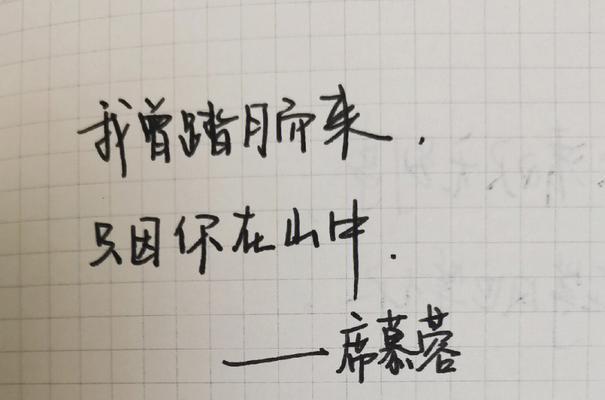 我曾踏月而来.
只因你在山中.
——席慕蓉